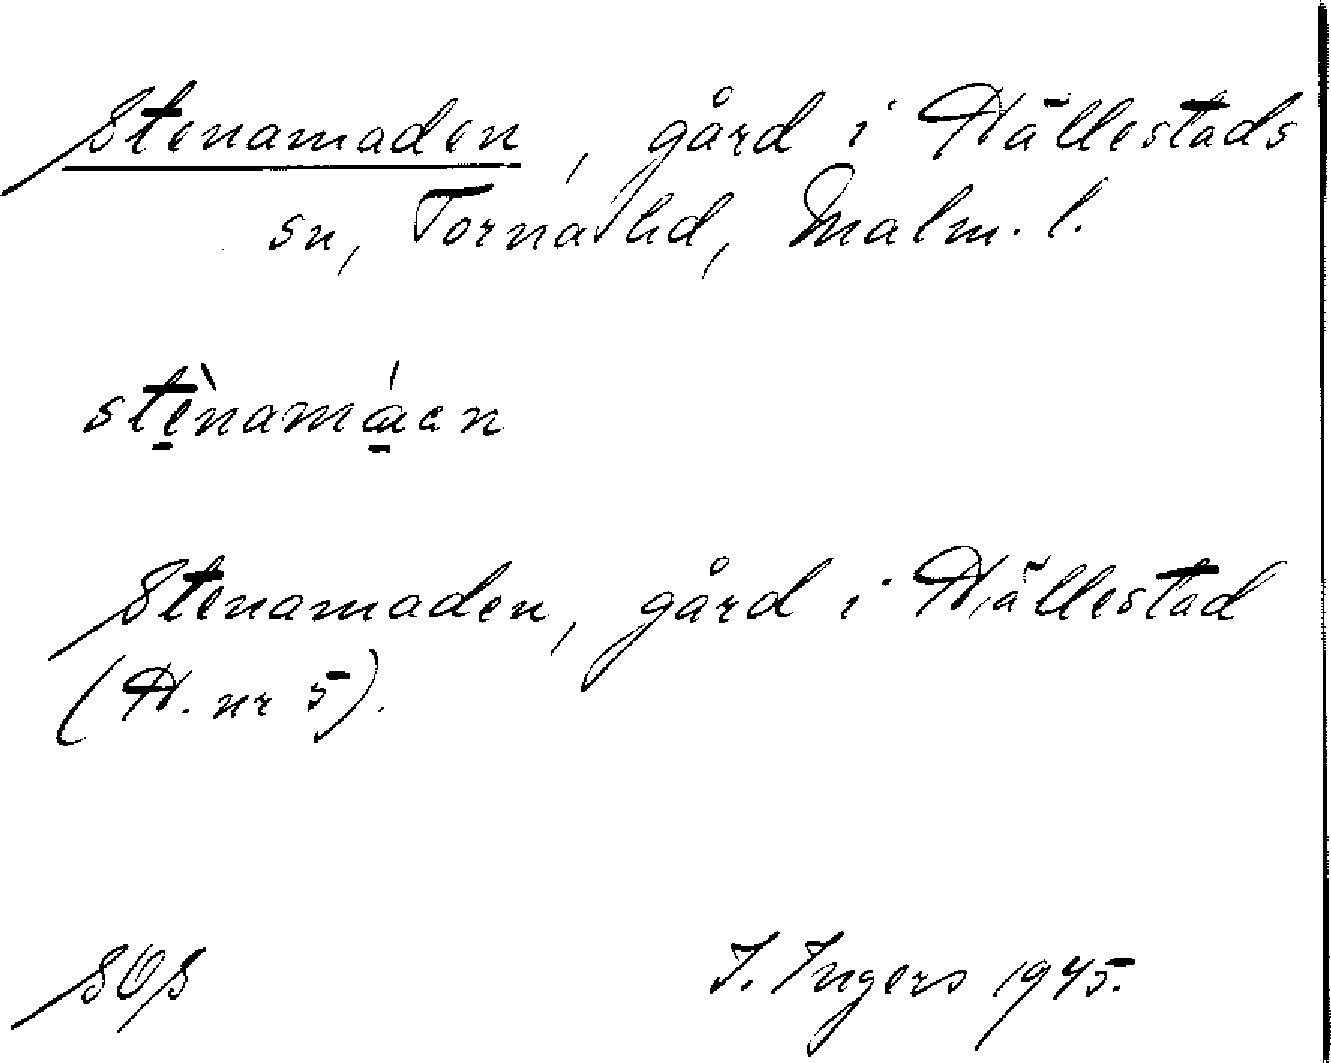 Stenamaden, gård i Hällestads
sn, Torna hd, Malm. l.
stènamáen
Stenamaden, gård i Hällestad
(H. nr 5).
SOS
I. Ingers 1945.